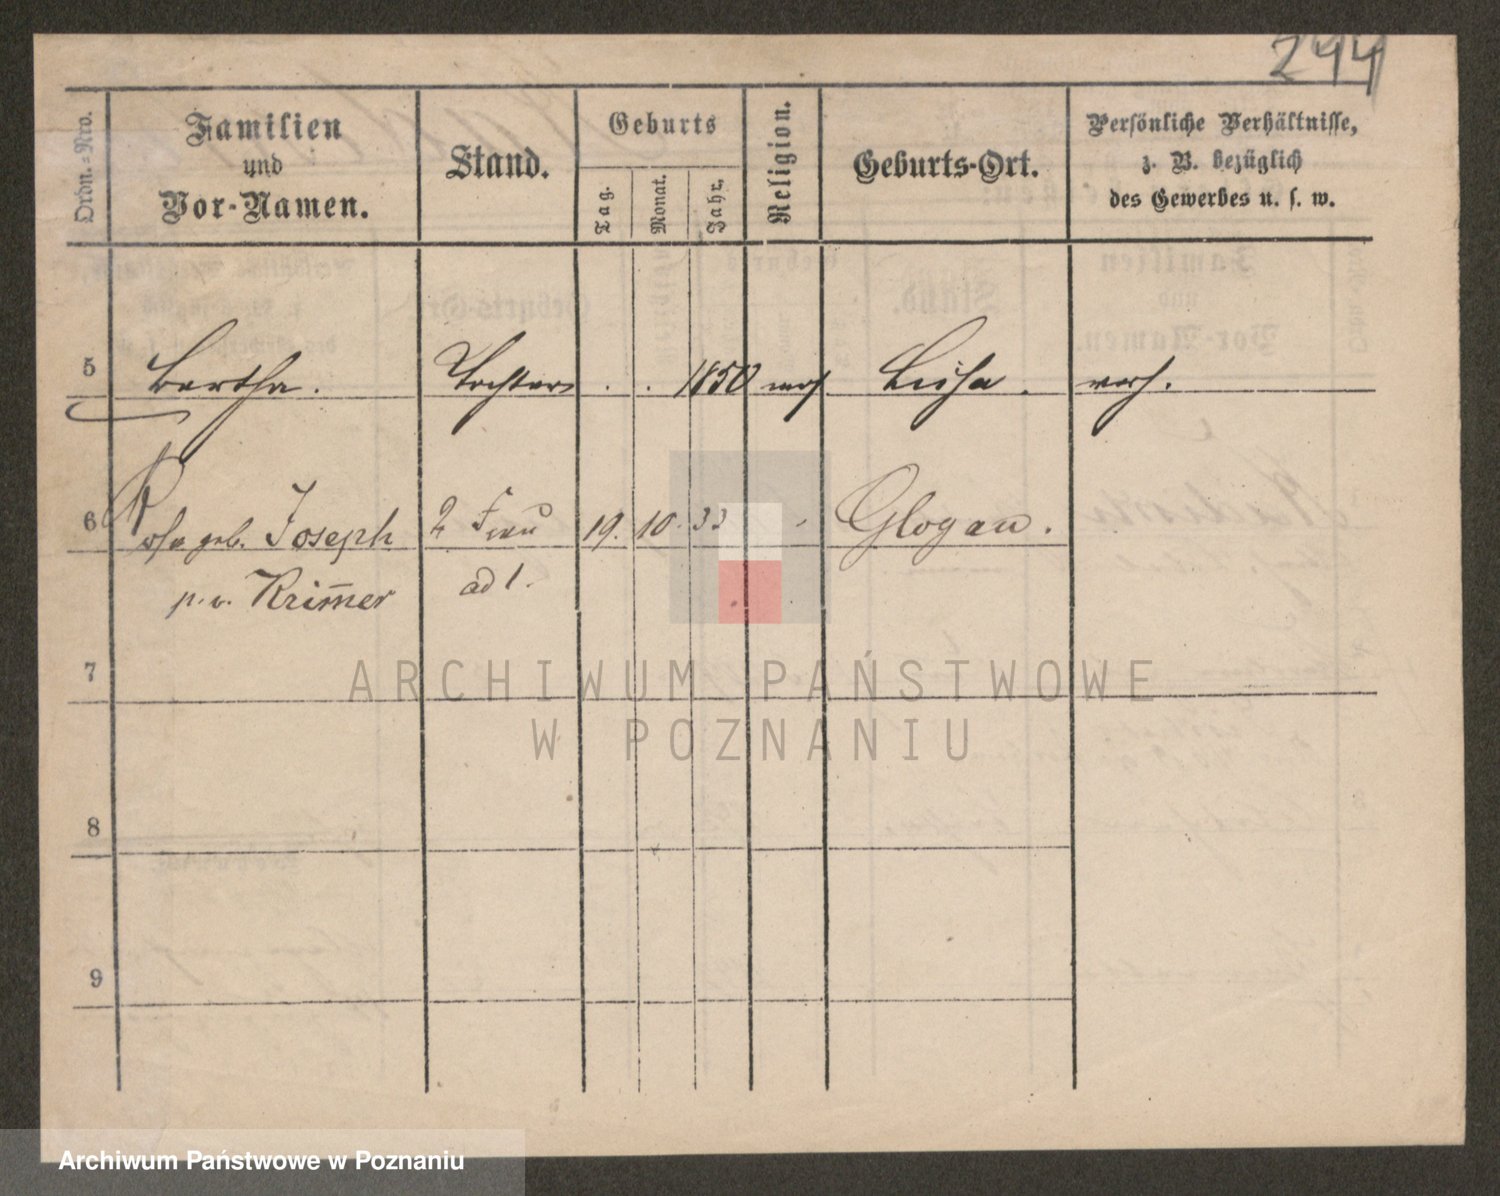 244
Ordn.=Nro.
Familien
und
Vor-Namen.
Stand.
Geburts
Tag.
Monat.
Jahr.
Religion.
Geburts-Ort.
Persönliche Verhältnisse,
z. B. bezüglich
des Gewerbes u. s. w.
5 Bertha. Tochter . . 1850 mos Lissa. verh.
6 Rosa geb. Joseph 2 Frau 19. 10. 33 Glogau.
p. v. Krim̄er ad 1.
7
8
9
ARCHIWUM PAŃSTWOWE
W POZNANIU
Archiwum Państwowe w Poznaniu